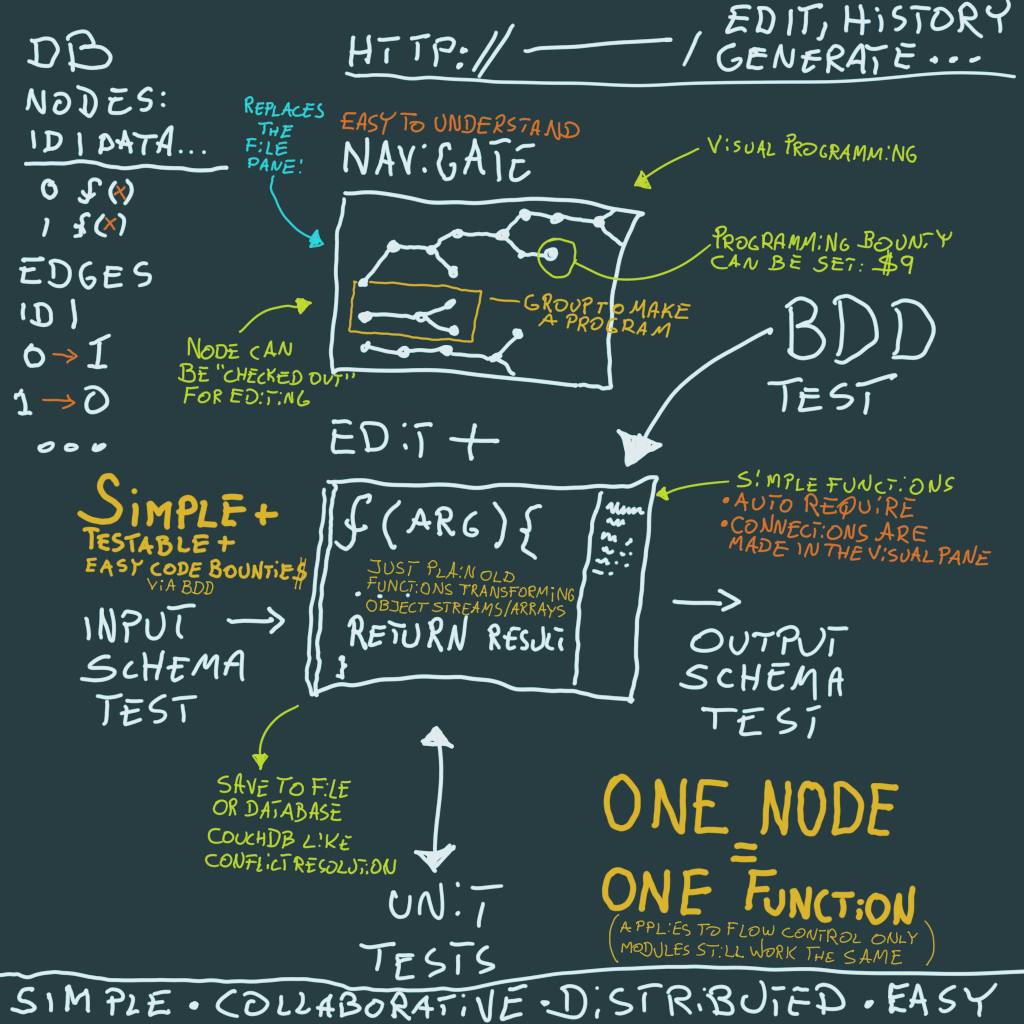 DB
NODES:
ID | DATA...
0 f(x)
1 f(x)
EDGES
ID |
0 → 1
1 → 0
...
HTTP:// ———— / EDIT, HISTORY
GENERATE...
REPLACES
THE
FILE
PANE!
EASY TO UNDERSTAND
NAVIGATE
VISUAL PROGRAMMING
PROGRAMMING BOUNTY
CAN BE SET: $9
GROUP TO MAKE
A PROGRAM
NODE CAN
BE "CHECKED OUT"
FOR EDITING
BDD
TEST
EDIT +
SIMPLE +
TESTABLE +
EASY CODE BOUNTIE$
VIA BDD
f (ARG) {
JUST PLAIN OLD
FUNCTIONS TRANSFORMING
OBJECT STREAMS/ARRAYS
. . . .
RETURN RESULT
}
SIMPLE FUNCTIONS
• AUTO REQUIRE
• CONNECTIONS ARE
MADE IN THE VISUAL PANE
INPUT →
SCHEMA
TEST
→
OUTPUT
SCHEMA
TEST
SAVE TO FILE
OR DATABASE
COUCHDB LIKE
CONFLICT RESOLUTION
UNIT
TESTS
ONE NODE
=
ONE FUNCTION
(APPLIES TO FLOW CONTROL ONLY
MODULES STILL WORK THE SAME)
SIMPLE • COLLABORATIVE • DISTRIBUTED • EASY